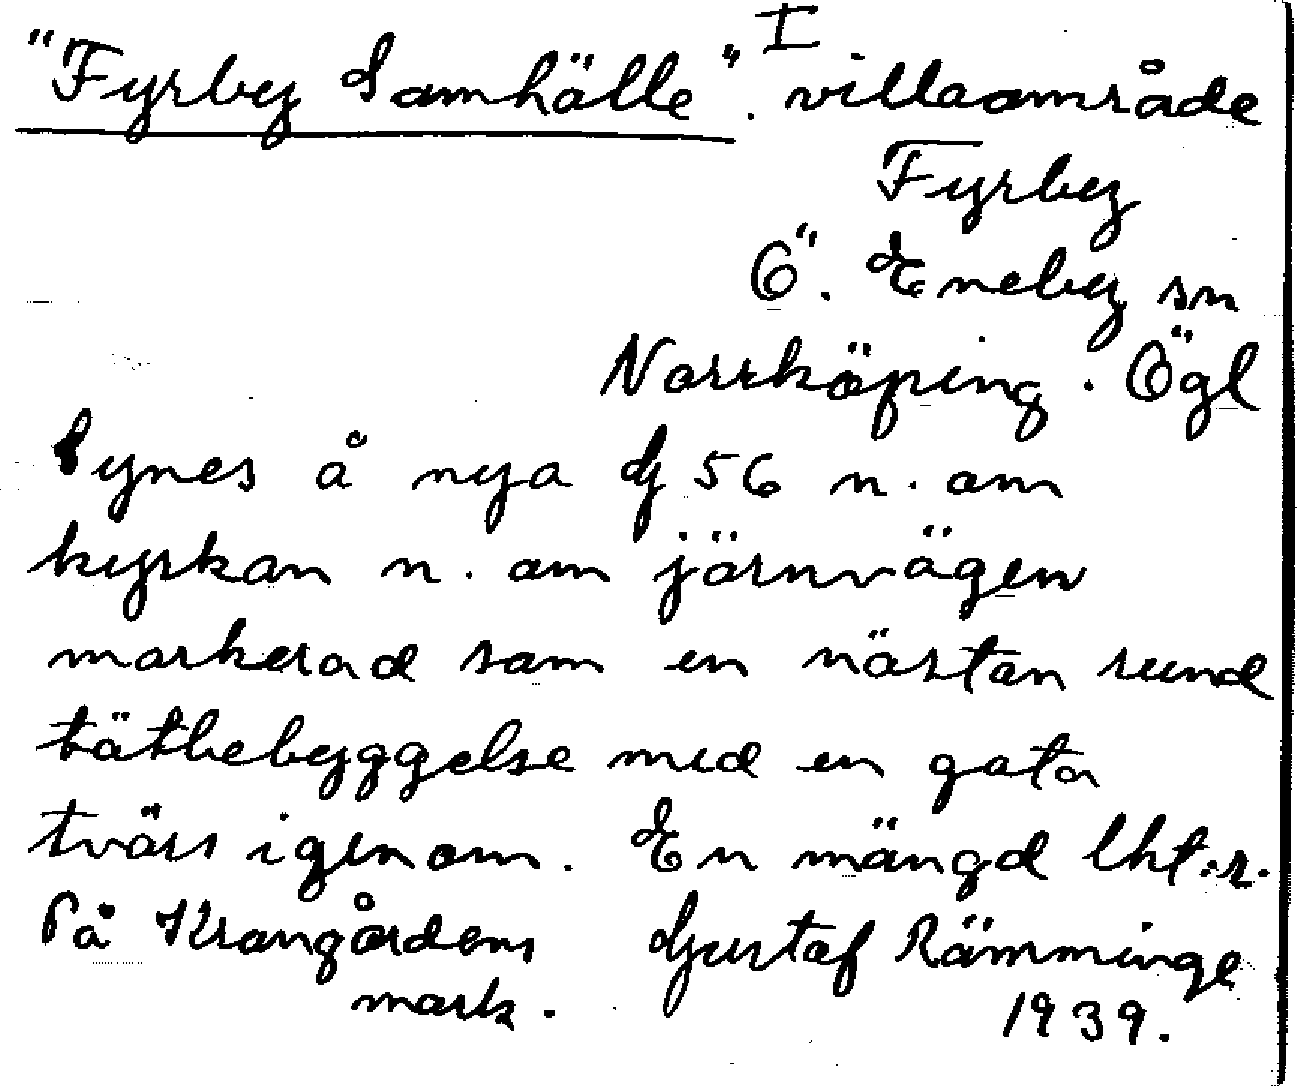 I
"Fyrby Samhälle". villaområde
Fyrby
Ö. Eneby sn
Norrköping. Ögl
Synes å nya G 56 n. om
kyrkan n. om järnvägen
markerad som en nästan rund
tätbebyggelse med en gata
tvärs igenom. En mängd lht:r.
På Krongårdens Gustaf Rämminge
mark. 1939.